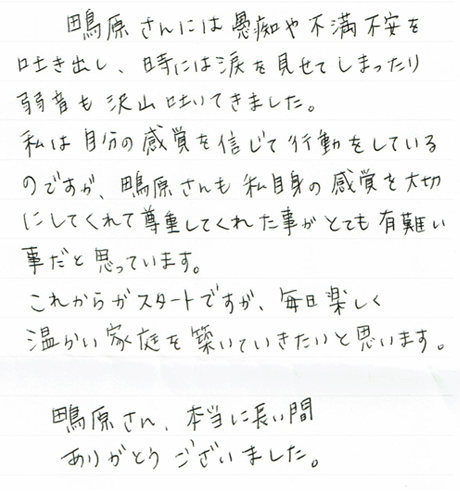 鴨原さんには愚痴や不満不安を
吐き出し、時には涙を見せてしまったり
弱音も沢山吐いてきました。
私は自分の感覚を信じて行動をしている
のですが、鴨原さんも私自身の感覚を大切
にしてくれて尊重してくれた事がとても有難い
事だと思っています。
これからがスタートですが、毎日楽しく
温かい家庭を築いていきたいと思います。
鴨原さん、本当に長い間
ありがとうございました。